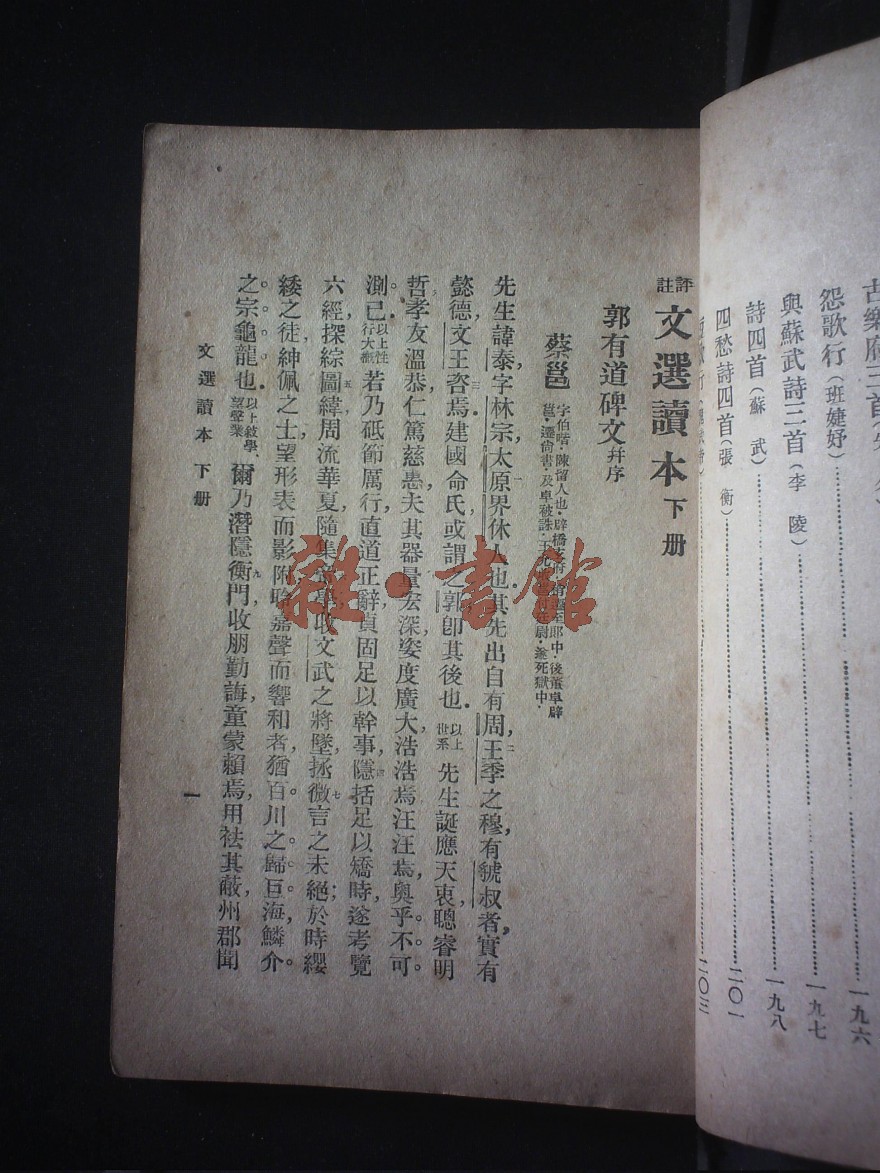 古樂府三首
怨歌行（班婕妤）……一九六
與蘇武詩三首（李陵）……一九七
詩四首（蘇武）……一九八
四愁詩四首（張衡）……二〇一
二〇三
評註文選讀本下册
郭有道碑文并序
蔡邕 字伯喈·陳留人也·辟橋玄府·中·後董卓辟
邕·遷尚書·及卓被誅·王允·遂死獄中·
先生諱泰字林宗太原界休人也其先出自有周王季之穆有虢叔者實有
懿德文王咨焉建國命氏或謂之郭卽其後也以上世系先生誕應天衷聰睿明
哲孝友溫恭仁篤慈惠夫其器量宏深姿度廣大浩浩焉汪汪焉奧乎不可
測已以上性行大概若乃砥節厲行直道正辭貞固足以幹事隱括足以矯時遂考覽
六經探綜圖緯周流華夏隨集收文武之將墜拯微言之未絕於時纓
緌之徒紳佩之士望形表而影附聆嘉聲而響和者猶百川之歸巨海鱗介
之宗龜龍也以上敍學望聲業爾乃潛隱衡門收朋勤誨童蒙賴焉用祛其蔽州郡聞
文選讀本下册
一
雜·書館